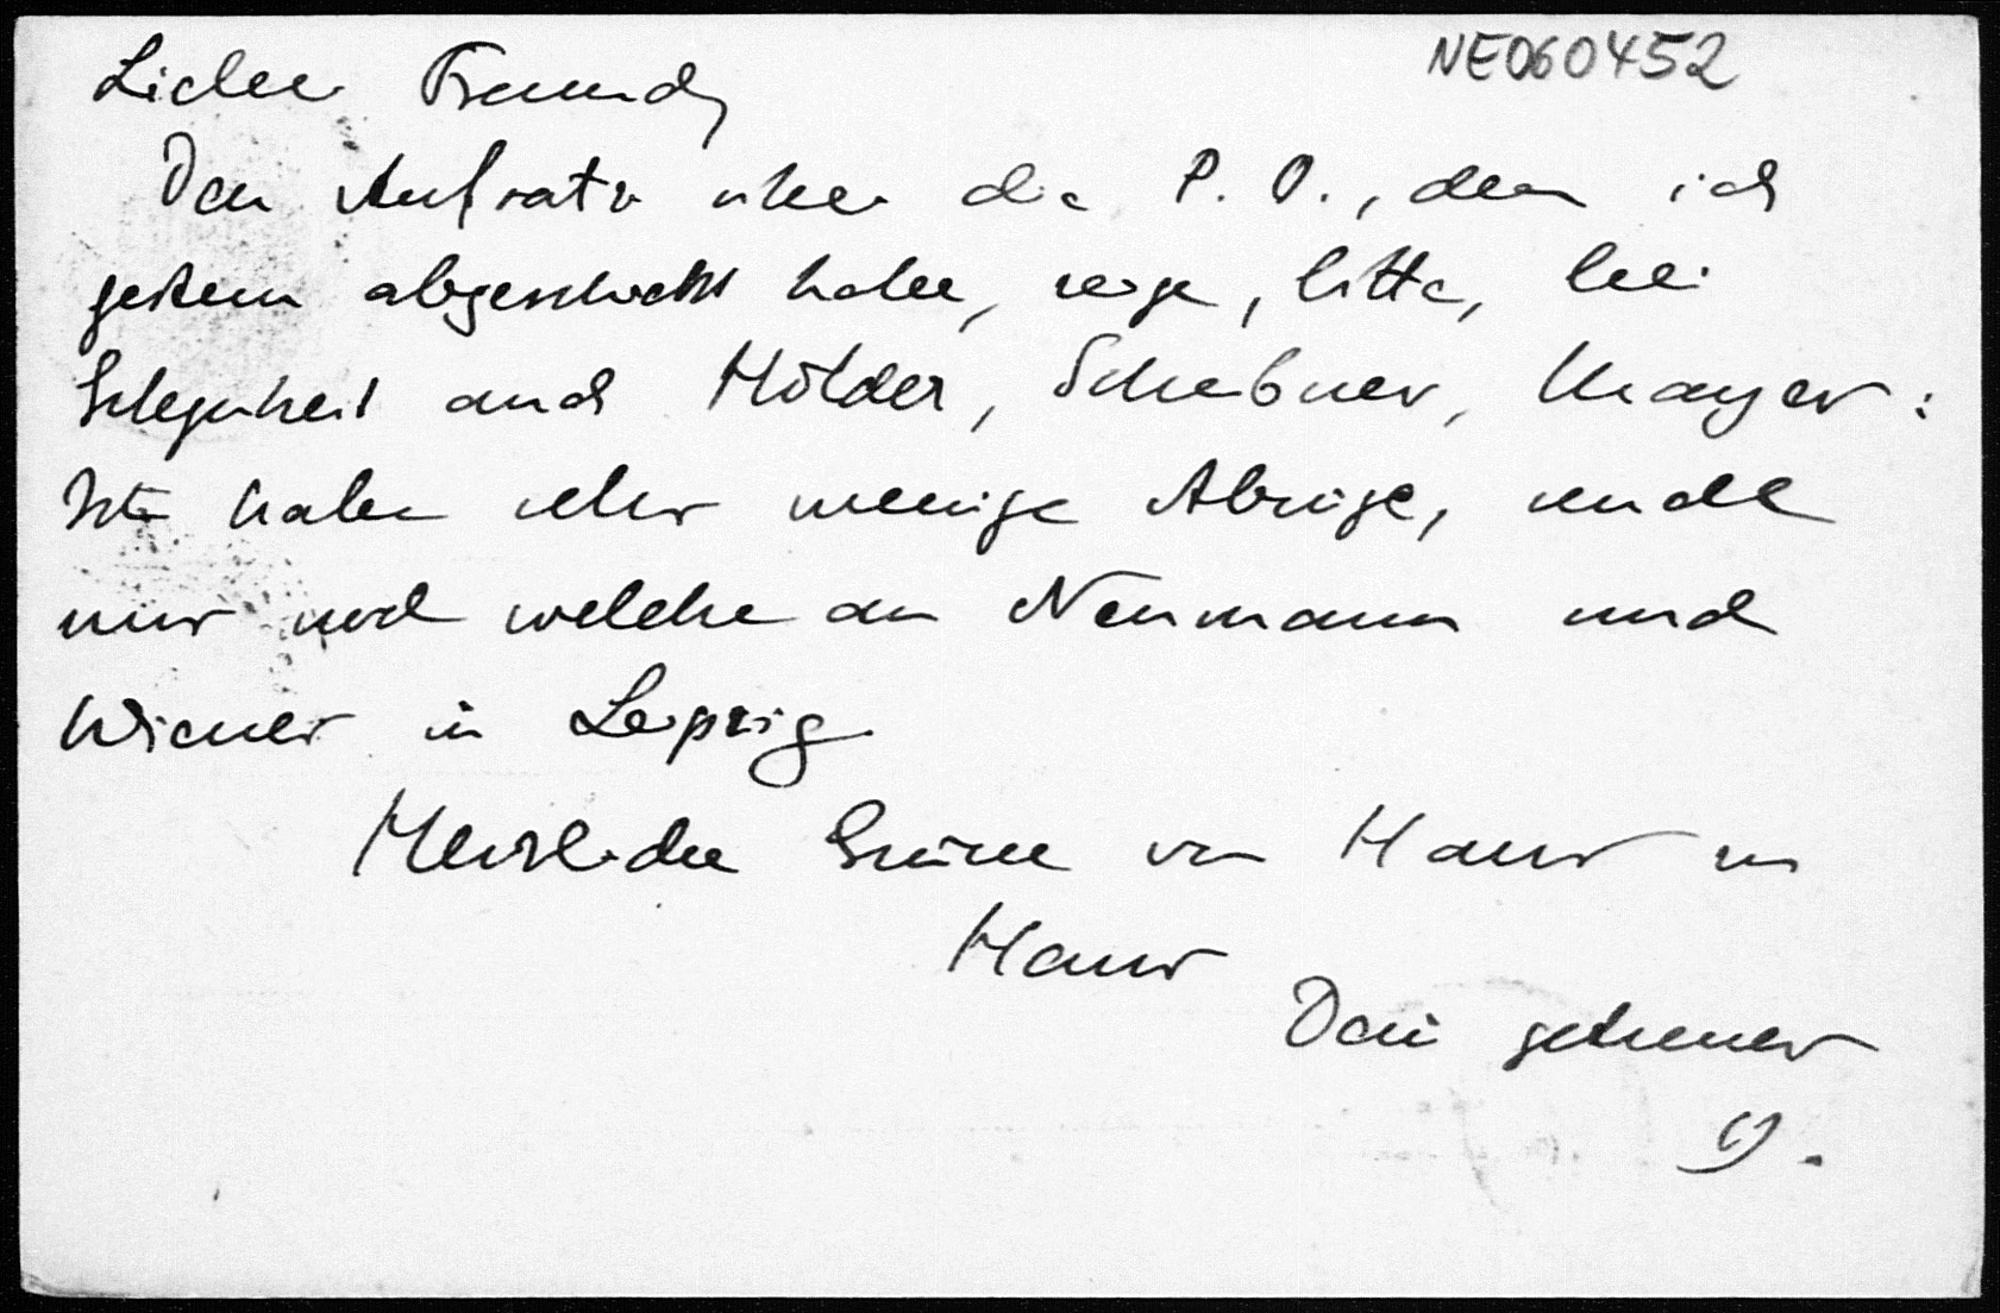 NE060452
Lieber Freund,
Den Aufsatz über die P. O., den ich
gestern abgeschickt habe, zeige, bitte, bei
Gelegenheit auch Hölder, Scheibner, Mayer:
Ich habe sehr wenige Abzüge, sende
nur noch welche an Neumann und
Wiener in Leipzig.
Herzliche Grüsse von Haus zu
Haus
Dein getreuer